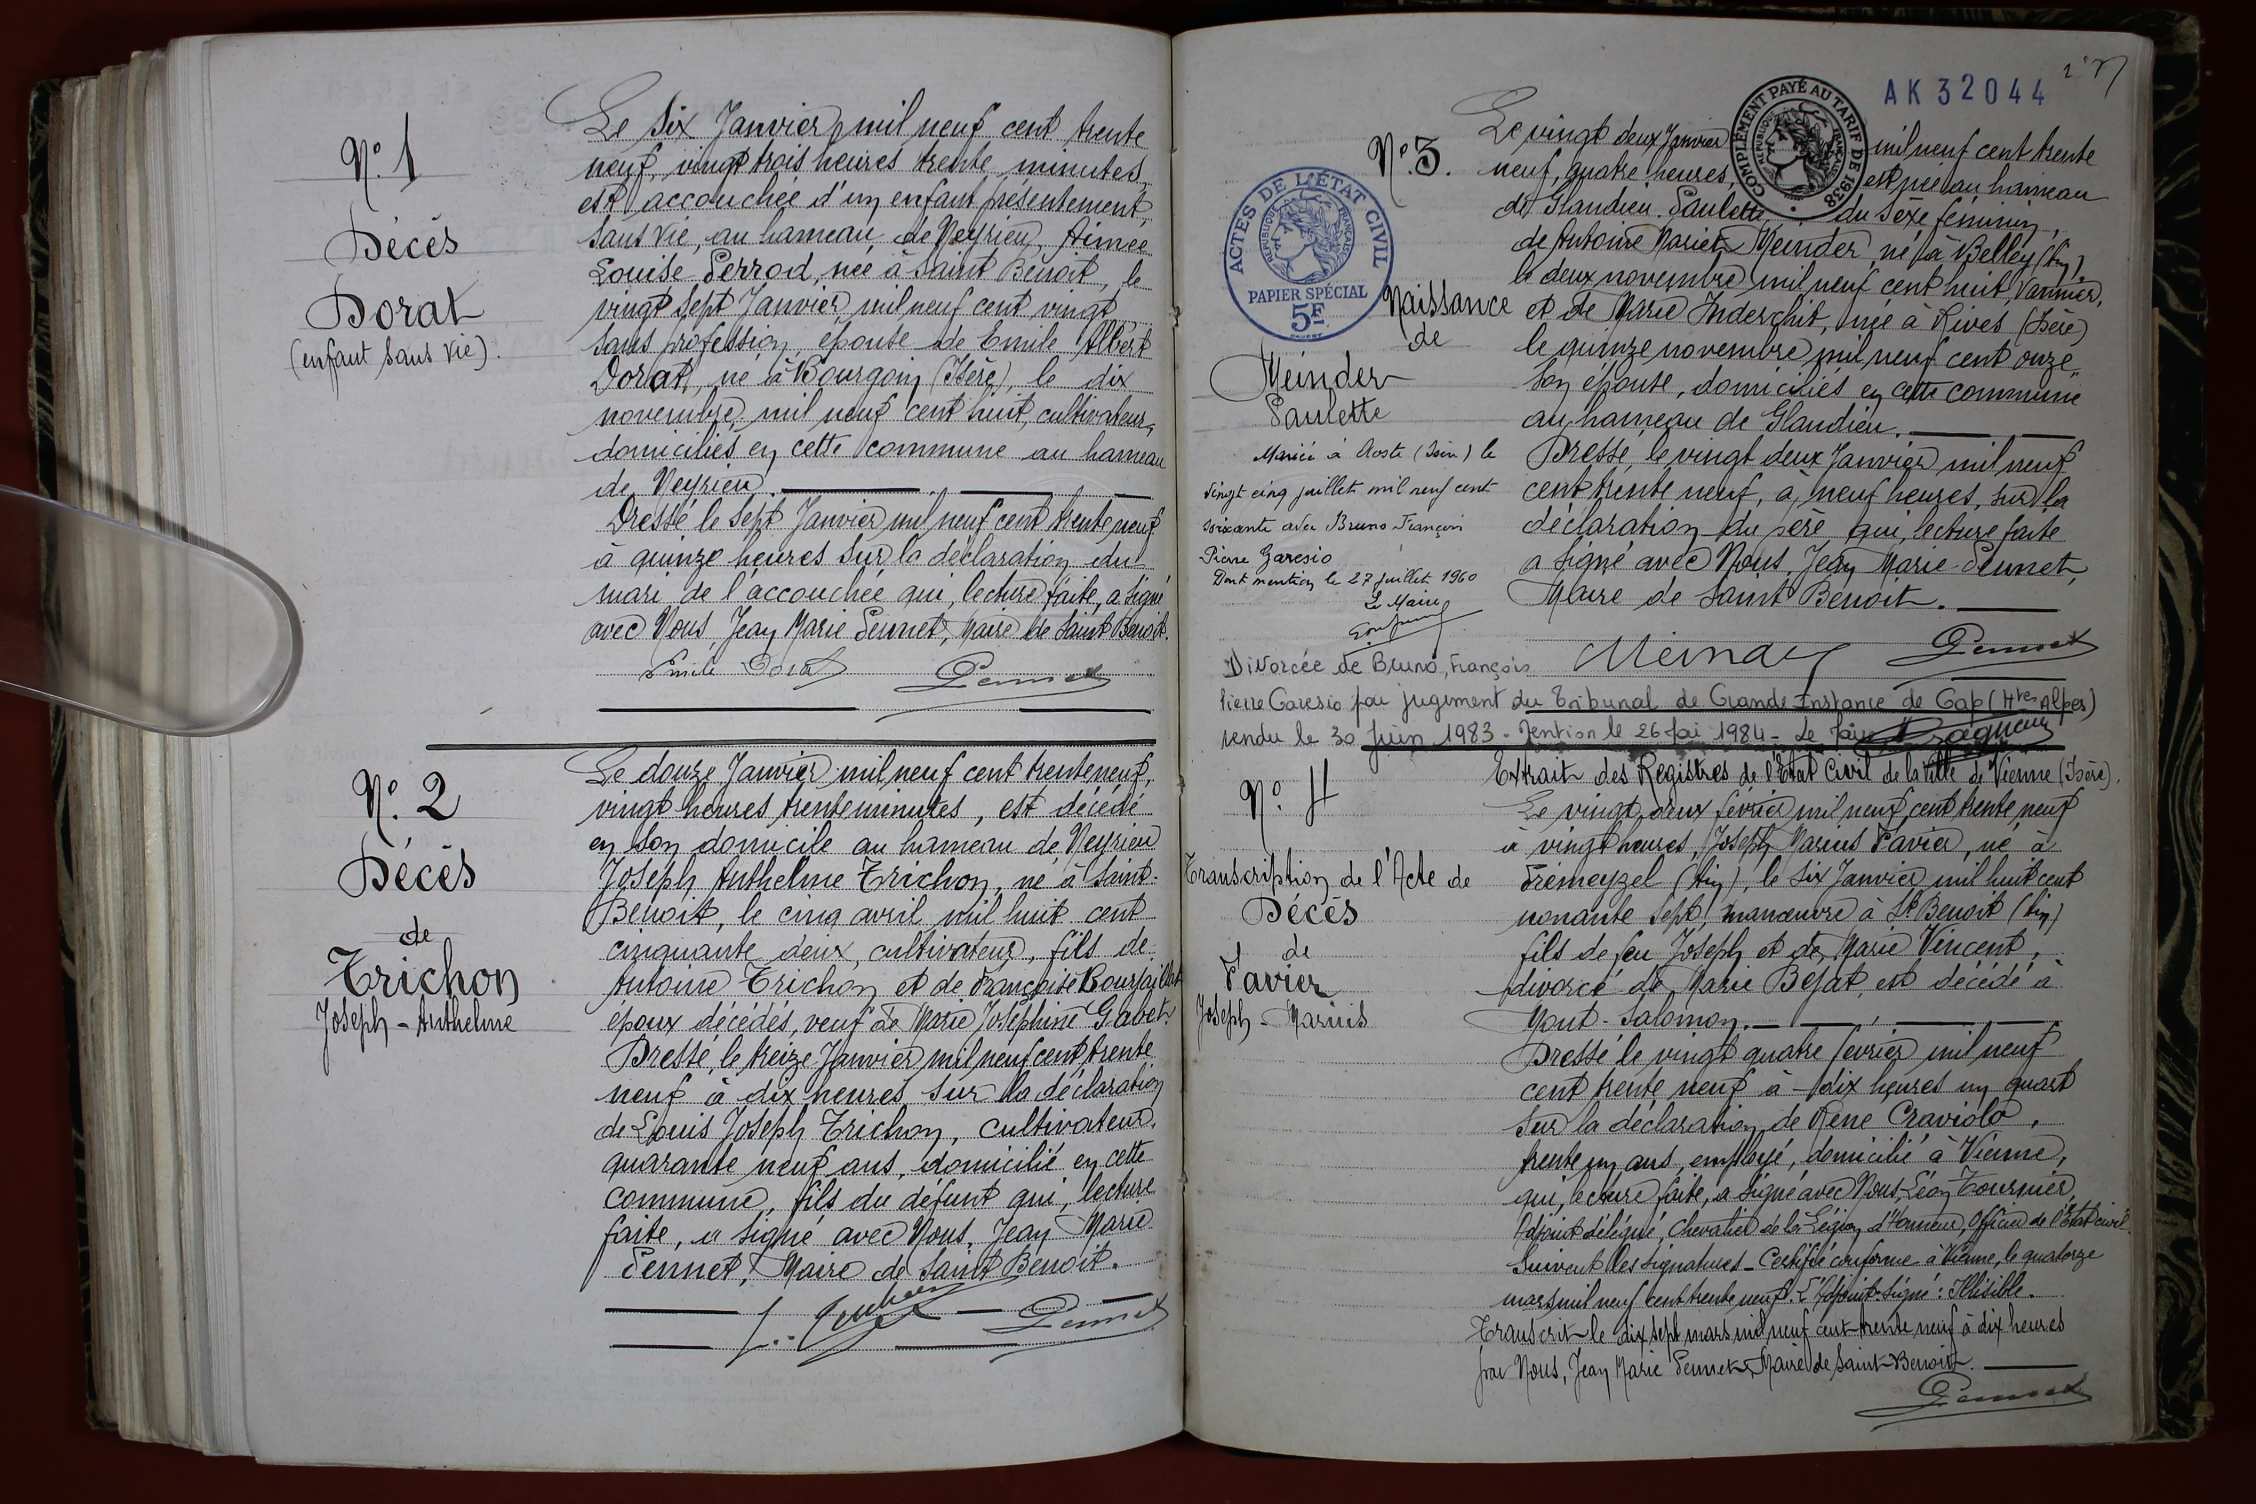 N° 1
Décès
Dorat
(enfant sans vie).
Le six Janvier mil neuf cent trente
neuf, vingt trois heures trente minutes,
est accouchée d'un enfant présentement
sans vie, au hameau de Neyrieu, Aimée
Louise Perrod, née à Saint Benoit, le
vingt sept Janvier mil neuf cent vingt
sans profession, épouse de Emile Albert
Dorat, né à Bourgoin (Isère), le dix
novembre mil neuf cent huit, cultivateur,
domiciliés en cette commune au hameau
de Neyrieu.
Dressé le sept Janvier mil neuf cent trente neuf
à quinze heures sur la déclaration du
mari de l'accouchée qui, lecture faite, a signé
avec Nous, Jean Marie Pennet, Maire de Saint Benoit.
Emile Dorat Pennet
N° 2
Décès
de
Trichon
Joseph - Anthelme
Le douze Janvier mil neuf cent trente neuf,
vingt heures trente minutes, est décédé
en son domicile au hameau de Neyrieu
Joseph Anthelme Trichon, né à Saint-
Benoit, le cinq avril mil huit cent
cinquante deux, cultivateur, fils de
Antoine Trichon et de Françoise
époux décédés, veuf de Marie Joséphine Gabet.
Dressé, le treize Janvier mil neuf cent trente
neuf à dix heures sur la déclaration
de Louis Joseph Trichon, cultivateur,
quarante neuf ans, domicilié en cette
commune, fils du défunt qui, lecture
faite, a signé avec Nous, Jean Marie
Pennet, Maire de Saint Benoit.
Pennet
AK 32044
COMPLÉMENT PAYÉ AU TARIF DE 1938
RÉPUBLIQUE FRANÇAISE
ACTES DE L'ÉTAT CIVIL
RÉPUBLIQUE FRANÇAISE
PAPIER SPÉCIAL
5F
N° 3.
Naissance
de
Meinder
Paulette
Mariée à Aoste (Isère) le
vingt cinq juillet mil neuf cent
soixante avec Bruno François
Pierre Garesio
Dont mention le 27 juillet 1960
Le Maire
Le vingt deux Janvier mil neuf cent trente
neuf, quatre heures, est née au hameau
de Glandieu Paulette, du sexe féminin,
de Antoine Meinder, né à Belley (Ain),
le deux novembre mil neuf cent huit, vannier,
et de Marie Inderchit, née à Rives (Isère)
le quinze novembre mil neuf cent onze,
son épouse, domiciliés en cette commune
au hameau de Glandieu.
Dressé, le vingt deux Janvier mil neuf
cent trente neuf, à neuf heures, sur la
déclaration du père qui, lecture faite
a signé avec Nous, Jean Marie Pennet,
Maire de Saint Benoit.
Meinder Pennet
Divorcée de Bruno, François
Pierre Garesio par jugement du Tribunal de Grande Instance de Gap (Htes Alpes)
rendu le 30 Juin 1983 - Mention le 26 Mai 1984 - Le Maire
N° 4
Transcription de l'Acte de
Décès
de
Favier
Joseph - Marius
Extrait des Registres de l'Etat Civil de la Ville de Vienne (Isère).
Le vingt deux février mil neuf cent trente neuf
à vingt heures, Joseph Marius Favier, né à
Prémeyzel (Ain), le six Janvier mil huit cent
nonante sept, manœuvre à St Benoit (Ain)
fils de feu Joseph et de Marie Vincent,
divorcé de Marie Béjat, est décédé à
Mont-Salomon.
Dressé le vingt quatre février mil neuf
cent trente neuf à dix heures un quart
sur la déclaration de René Craviolo,
trente un ans, employé, domicilié à Vienne,
qui, lecture faite, a signé avec Nous, Léon Tournier,
Adjoint délégué, Chevalier de la Légion d'Honneur, Officier de l'Etat civil.
Suivent les signatures - Certifié conforme à Vienne, le quatorze
mars mil neuf cent trente neuf. L'Adjoint signé : Illisible.
Transcrit le dix sept mars mil neuf cent trente neuf à dix heures
par Nous, Jean Marie Pennet, Maire de Saint-Benoit.
Pennet